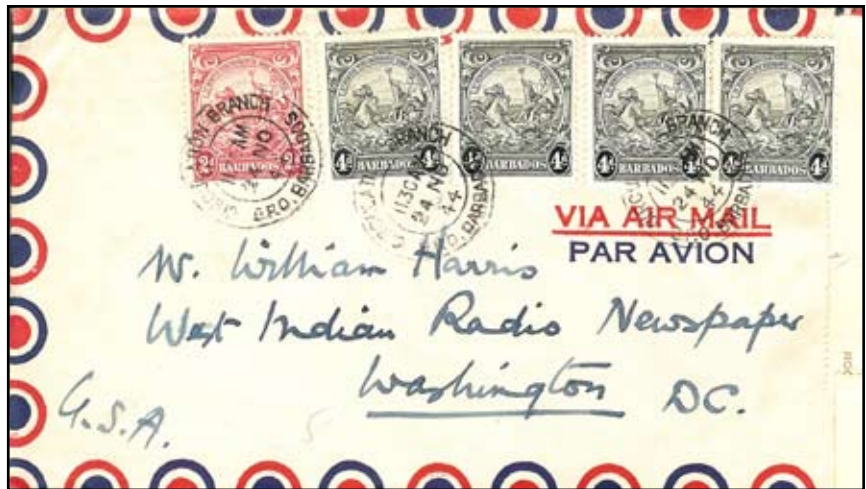 2d BARBADOS 2d
4d BARBADOS 4d
4d BARBADOS 4d
4d BARBADOS 4d
4d BARBADOS 4d
BRANCH
G.P.O. BARBADOS
AM
NO
BRANCH
1130AM
24 NO
44
G.P.O. BARBADOS
BRANCH
AM
24 NO
44
G.P.O. BARBADOS
VIA AIR MAIL
PAR AVION
W. William Harris
West Indian Radio Newspaper
Washington DC.
U.S.A.